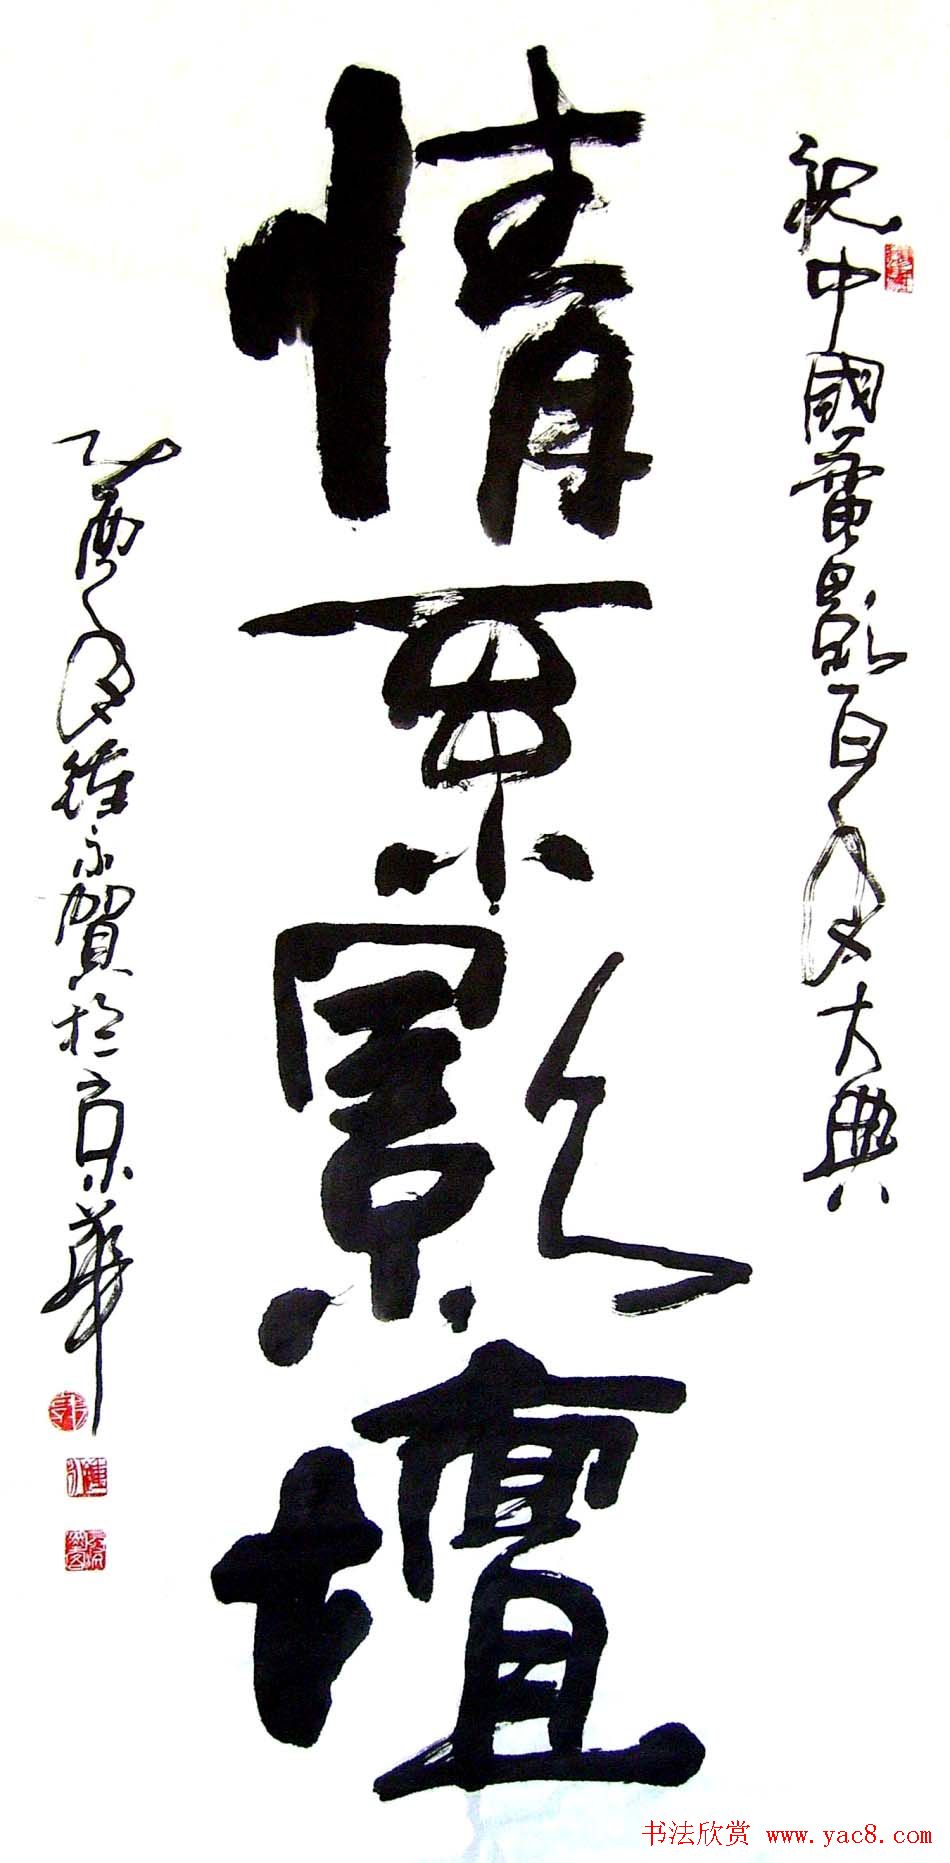 祝中國電影百年大典
情系影壇
乙酉年鍾永賀於京華
书法欣赏 www.yac8.com